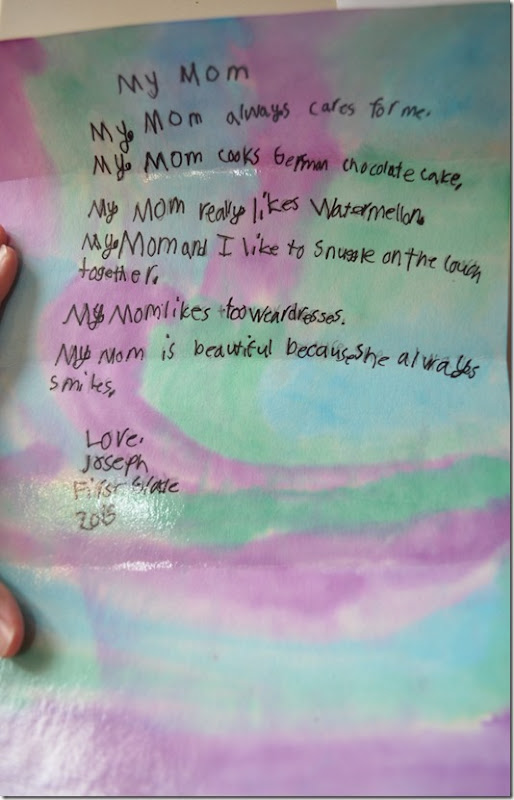 My Mom
My Mom always cares for me.
My Mom cooks German chocolate cake.
My Mom really likes Watermellon.
My Mom and I like to snuggle on the couch
together.
My Mom likes to wear dresses.
My Mom is beautiful because she always
smiles.
Love,
Joseph
First Grade
2015